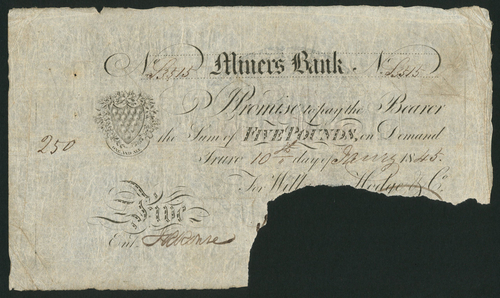 No. L3515 Miners Bank. No. L3515
I Promise to pay the Bearer
the Sum of FIVE POUNDS, on Demand
250
Truro 10th day of Jany 1845.
For Will Hodge & Co.
Five
Entd.